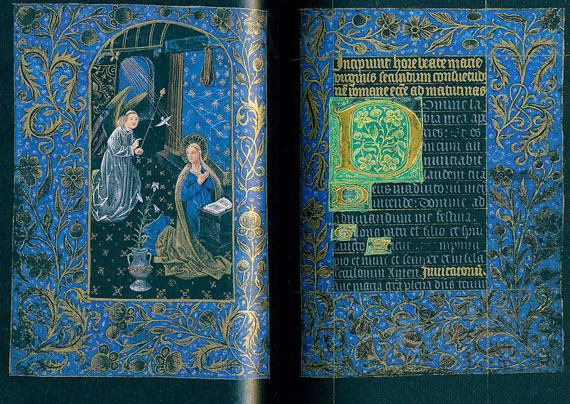 Incipiunt hore beate marie
virginis secundum consuetud
nē romane ecce ad matutinas
Domine la
bia mea ap
ries: Et os
meum an
nunciabit
laudem
Deus in adiutoriū meū
intende: Domine ad
adiuvandum me festina.
Gloria patri et filio et spiri
sancto
pio et nunc et semper et in secula
seculorum Amen. Invitatoriū.
Ave maria gra plena dns tecum